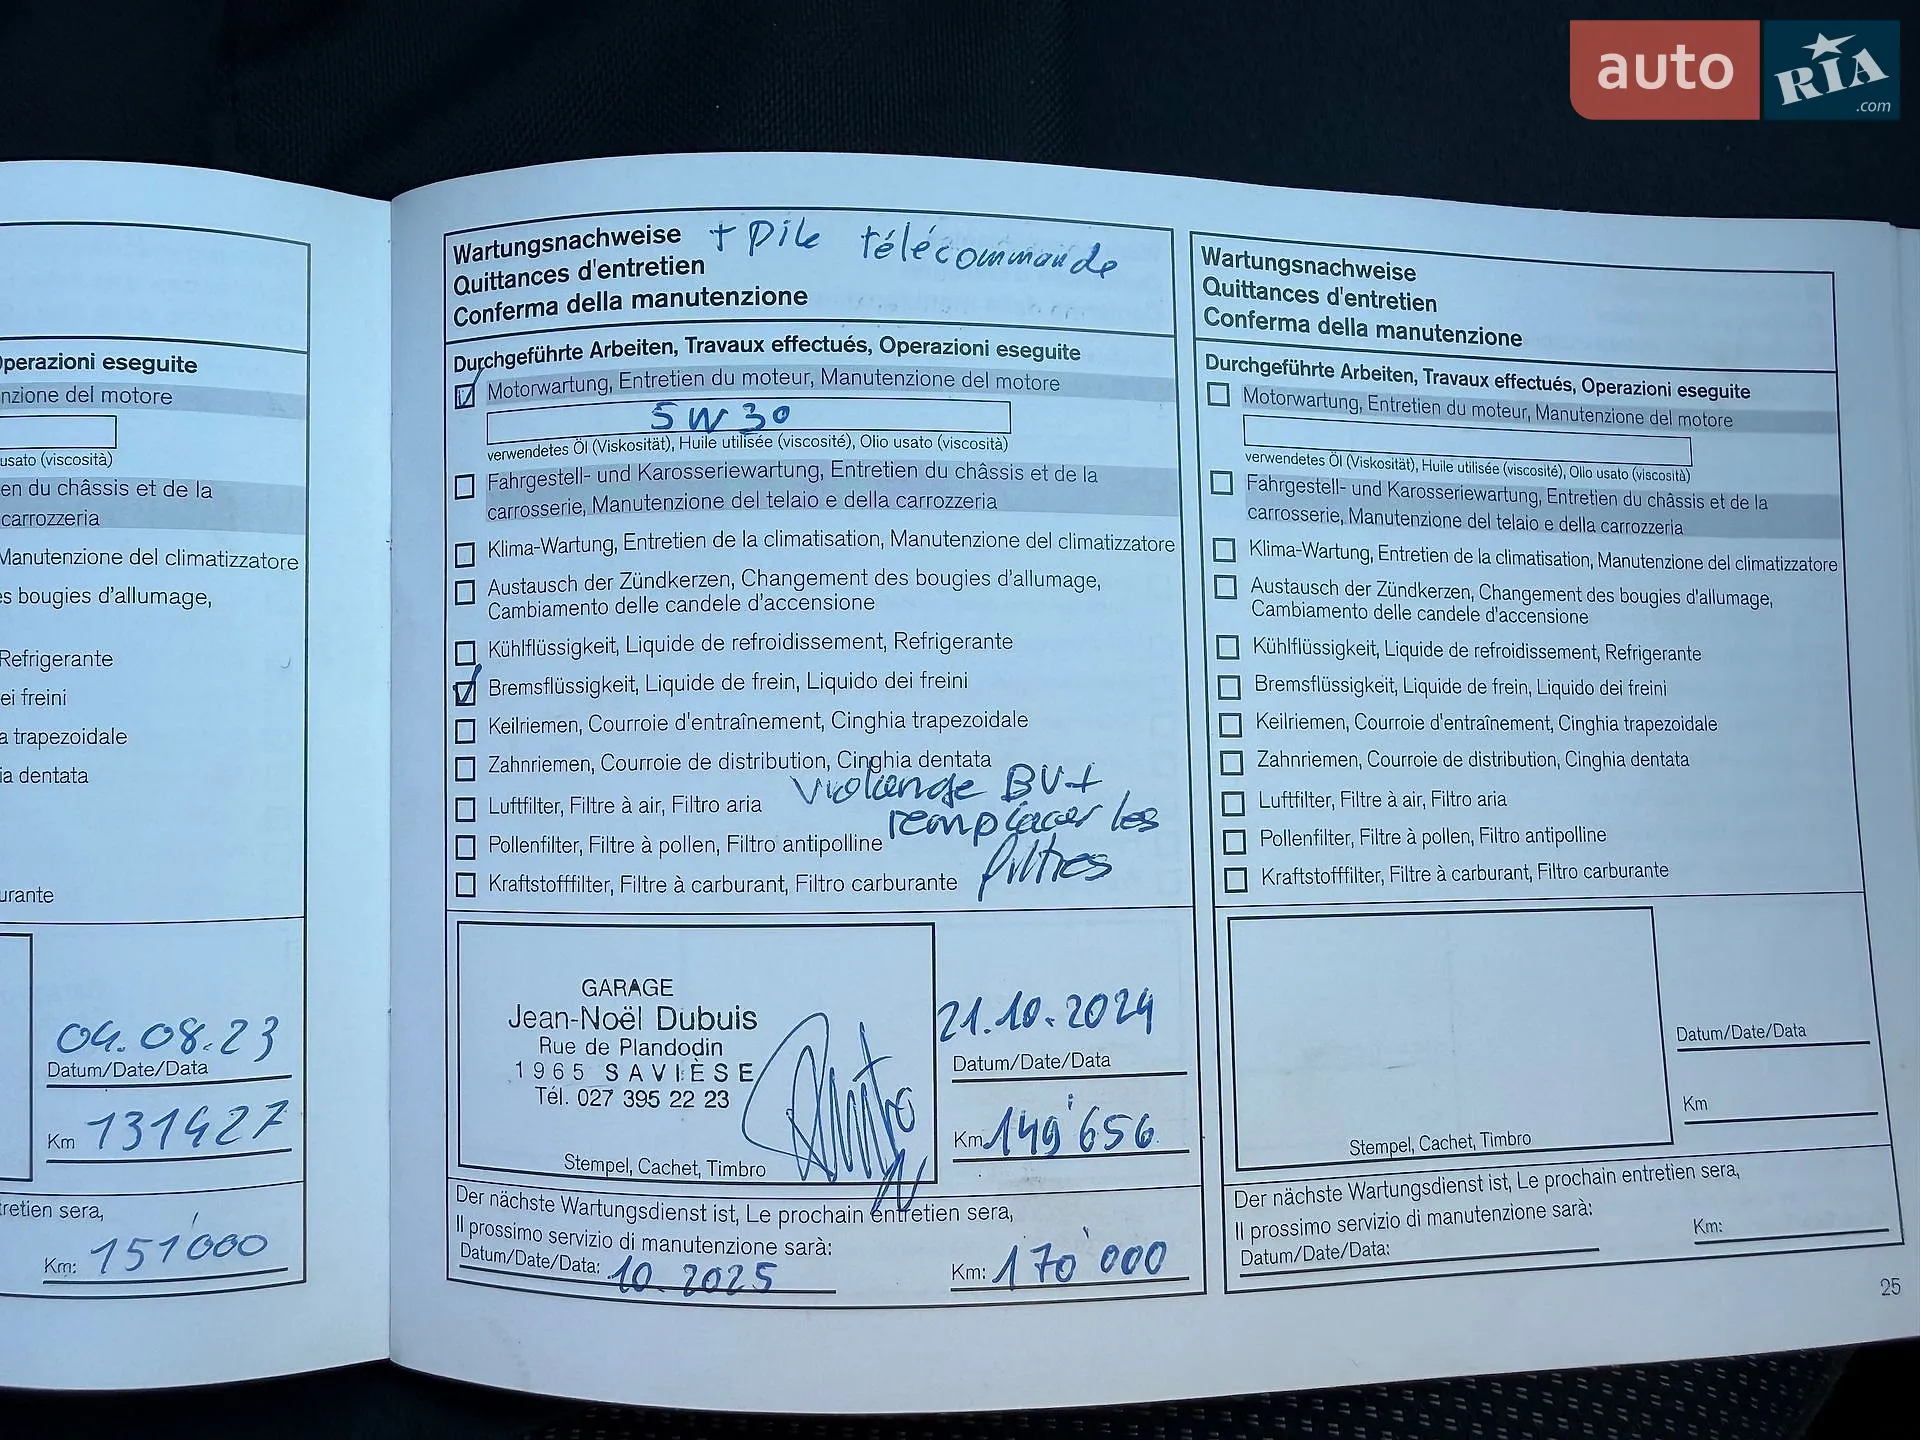 auto
RIA
.com
Operazioni eseguite
nzione del motore
usato (viscosità)
en du châssis et de la
carrozzeria
Manutenzione del climatizzatore
es bougies d'allumage,
Refrigerante
ei freini
a trapezoidale
ia dentata
urante
04.08.23
Datum/Date/Data
Km 131427
retien sera,
Km: 151'000
Wartungsnachweise + pile télécommande
Quittances d'entretien
Conferma della manutenzione
Durchgeführte Arbeiten, Travaux effectués, Operazioni eseguite
Motorwartung, Entretien du moteur, Manutenzione del motore
5W30
verwendetes Öl (Viskosität), Huile utilisée (viscosité), Olio usato (viscosità)
Fahrgestell- und Karosseriewartung, Entretien du châssis et de la
carrosserie, Manutenzione del telaio e della carrozzeria
Klima-Wartung, Entretien de la climatisation, Manutenzione del climatizzatore
Austausch der Zündkerzen, Changement des bougies d'allumage,
Cambiamento delle candele d'accensione
Kühlflüssigkeit, Liquide de refroidissement, Refrigerante
Bremsflüssigkeit, Liquide de frein, Liquido dei freini
Keilriemen, Courroie d'entraînement, Cinghia trapezoidale
Zahnriemen, Courroie de distribution, Cinghia dentata
Luftfilter, Filtre à air, Filtro aria
Pollenfilter, Filtre à pollen, Filtro antipolline
Kraftstofffilter, Filtre à carburant, Filtro carburante
BV +
remplacer les
filtres
GARAGE
Jean-Noël Dubuis
Rue de Plandodin
1965 SAVIÈSE
Tél. 027 395 22 23
Stempel, Cachet, Timbro
21.10.2024
Datum/Date/Data
Km 149'656
Der nächste Wartungsdienst ist, Le prochain entretien sera,
Il prossimo servizio di manutenzione sarà:
Datum/Date/Data: 10.2025
Km: 170'000
Wartungsnachweise
Quittances d'entretien
Conferma della manutenzione
Durchgeführte Arbeiten, Travaux effectués, Operazioni eseguite
Motorwartung, Entretien du moteur, Manutenzione del motore
verwendetes Öl (Viskosität), Huile utilisée (viscosité), Olio usato (viscosità)
Fahrgestell- und Karosseriewartung, Entretien du châssis et de la
carrosserie, Manutenzione del telaio e della carrozzeria
Klima-Wartung, Entretien de la climatisation, Manutenzione del climatizzatore
Austausch der Zündkerzen, Changement des bougies d'allumage,
Cambiamento delle candele d'accensione
Kühlflüssigkeit, Liquide de refroidissement, Refrigerante
Bremsflüssigkeit, Liquide de frein, Liquido dei freini
Keilriemen, Courroie d'entraînement, Cinghia trapezoidale
Zahnriemen, Courroie de distribution, Cinghia dentata
Luftfilter, Filtre à air, Filtro aria
Pollenfilter, Filtre à pollen, Filtro antipolline
Kraftstofffilter, Filtre à carburant, Filtro carburante
Datum/Date/Data
Km
Stempel, Cachet, Timbro
Der nächste Wartungsdienst ist, Le prochain entretien sera,
Il prossimo servizio di manutenzione sarà:
Datum/Date/Data:
Km:
25